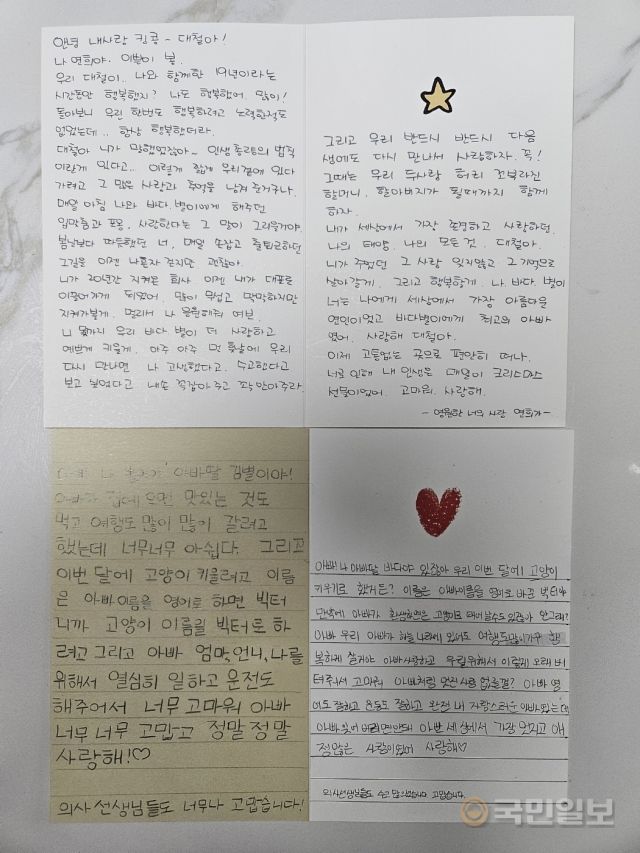 안녕 내사랑 킹콩 - 대철아!
나 연희야. 이쁜이 봄.
우리 대철이.. 나와 함께한 19년이라는
시간동안 행복했지? 나도 행복했어. 많이!
돌아보니 우린 한번도 행복하려고 노력한적도
없었는데.. 항상 행복했더라.
대철아 니가 말했었잖아~ 인생총량의 법칙
이란게 있다고.. 이렇게 짧게 우리곁에 있다
가려고 그 많은 사랑과 추억을 남겨 준거구나.
매일 아침 나와 바다.별이에게 해주던
입맞춤과 포옹, 사랑한다는 그 말이 그리울거야.
봄날보다 따듯했던 너, 매일 손잡고 출퇴근하던
그길을 이젠 나혼자 걷지만 괜찮아.
니가 20년간 지켜온 회사. 이젠 내가 대표로
이끌어가게 되었어. 많이 무섭고 막막하지만
지켜가볼게. 멀리서 나 응원해줘 여보.
니 몫까지 우리 바다 별이 더 사랑하고
예쁘게 키울게. 아주 아주 먼 훗날에 우리
다시 만나면 나 고생했다고. 수고했다고
보고 싶었다고 내손 꼭잡아주고 꽉 안아주라.
그리고 우리 반드시 반드시 다음
생에도 다시 만나서 사랑하자. 꼭!
그때는 우리 두사람 허리 꼬부라진
할머니. 할아버지가 될때까지 함께
하자.
내가 세상에서 가장 존경하고 사랑하던.
나의 태양. 나의 모든 것. 대철아.
니가 주었던 그 사랑 잊지않고 그 기억으로
살아갈게. 그리고 행복할게. 나. 바다. 별이
너는 나에게 세상에서 가장 아름다운
연인이었고 바다별이에게 최고의 아빠
였어. 사랑해 대철아.
이제 고통없는 곳으로 편안히 떠나.
너로 인해 내 인생은 매일이 크리스마스
선물이었어. 고마워. 사랑해.
- 영원한 너의 사랑 연희가 -
아빠딸 김별이야!
집에 오면 맛있는 것도
먹고 여행도 많이 많이 갈려고
했는데 너무너무 아쉽다. 그리고
이번 달에 고양이 키울려고 이름
은 아빠 이름을 영어로 하면 빅터
니까 고양이 이름을 빅터로 하
려고 그리고 아빠 엄마,언니,나를
위해서 열심히 일하고 운전도
해주어서 너무 고마워 아빠
너무 너무 고맙고 정말 정말
사랑해!♡
의사 선생님들도 너무나 고맙습니다!
아빠! 나 아빠딸 바다야 있잖아 우리 이번 달에 고양이
키우기로 했거든? 이름은 아빠이름을 영어로 바꾼 빅터야
만약에 아빠가 환생하면은 고양이로 태어날수도있잖아 안그래?
아빠 우리 아빠가 하늘 나라에 있어도 여행도많이가구 행
복하게 살거야 아빠사랑하고 우릴위해서 이렇게 오래 버
텨주서 고마워 아빠처럼 멋진 사람 없을걸? 아빠 영
어도 잘하고 운동도 잘하고 완전 내 자랑스러운 아빠였는데
아빠 잊어 버리면 안돼 아빤 세상에서 가장 멋지고 애
정많은 사람이였어 사랑해♡
의사선생님들도 수고 많으셨습니다. 고맙습니다.
국민일보